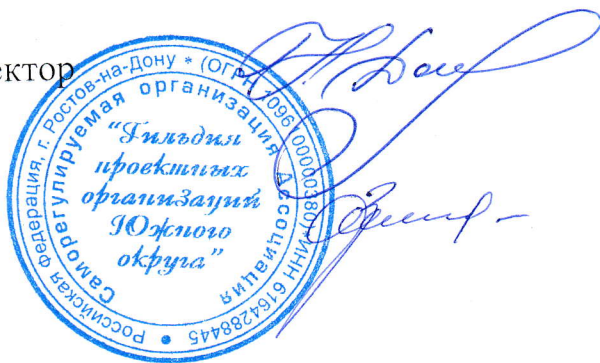 ектор
Российская Федерация, г. Ростов-на-Дону * (ОГРН 1096100000380)*ИНН 6164288445
Саморегулируемая организация Ассоциация
"Гильдия
проектных
организаций
Южного
округа"